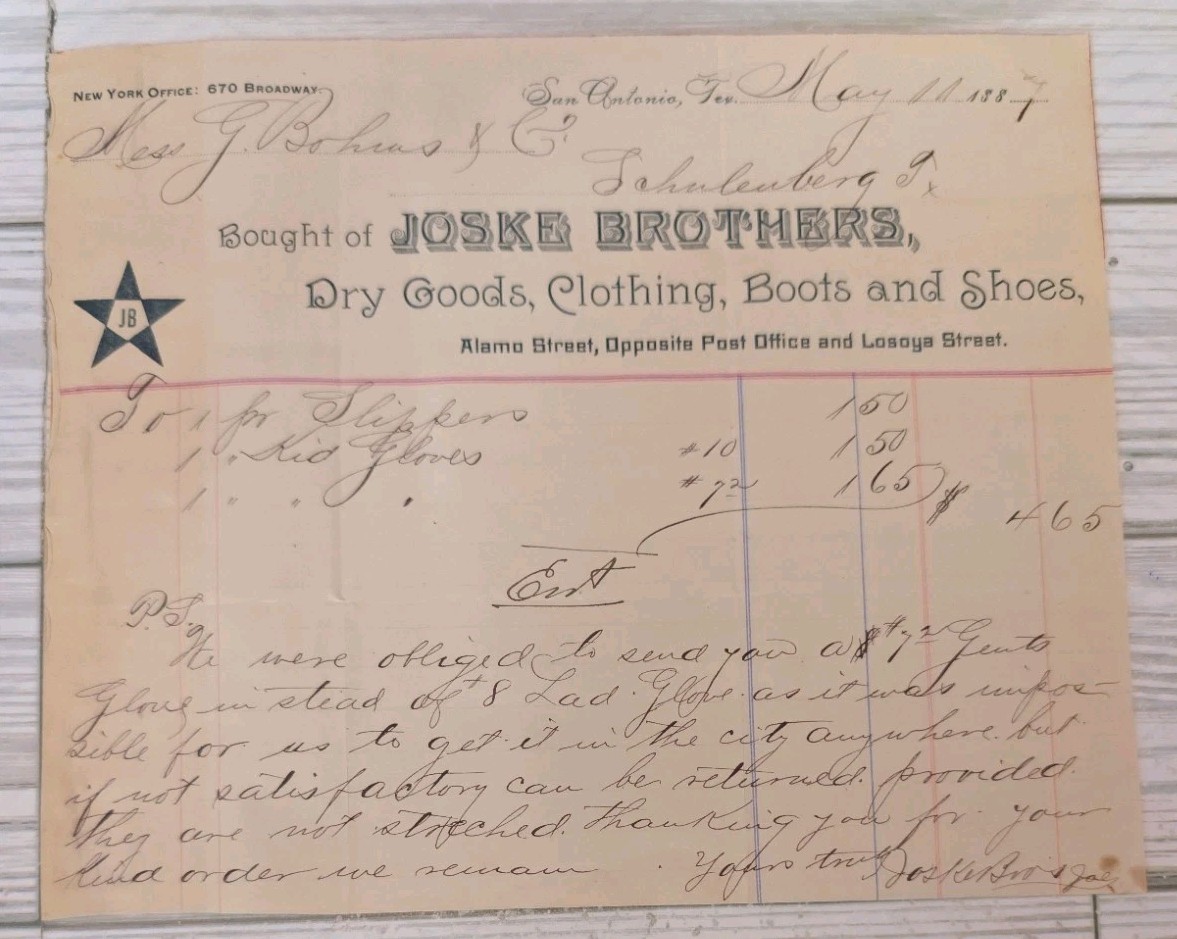 NEW YORK OFFICE: 670 BROADWAY.
San Antonio, Tex. May 11 1887
Mess G. Bohms & Co.
Schulenberg Tx
Bought of JOSKE BROTHERS,
Dry Goods, Clothing, Boots and Shoes,
JB
Alamo Street, Opposite Post Office and Losoya Street.
To 1 pr Slippers 1 50
1 " Kid Gloves #10 1 50
1 " " " #7½ 1 65 $ 4 65
P.S.
We were obliged to send you a #7½ Gents
Glove in stead of #8 Lad. Glove as it was impos-
sible for us to get it in the city anywhere but
if not satisfactory can be returned provided
they are not streched. Thanking you for your
kind order we remain Yours truly Joske Bros